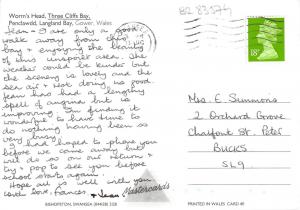 Worm's Head, Three Cliffs Bay,
Penclawdd, Langland Bay, Gower, Wales
Jean & I are only a good
walk away from this
bay & enjoying the beauty
of this unspoilt area. The
weather could be kinder but
the scenery is lovely and the
sea air. Not doing us good
Jean has had a lengthy
spell of angina but is
improving. I'm finding it
wonderful to have time to
do nothing having been so
very busy.
I had hoped to phone you
before we came away but
will do so on our return &
try & pop to see you before
school starts again.
Hope all is well with you
love from Frances & Jean
Mastercards
BISHOPSTON, SWANSEA
PRINTED IN WALES
18P
Mrs. E. Simmons
2 Orchard Grove
Chalfont St. Peter
BUCKS
SL9.